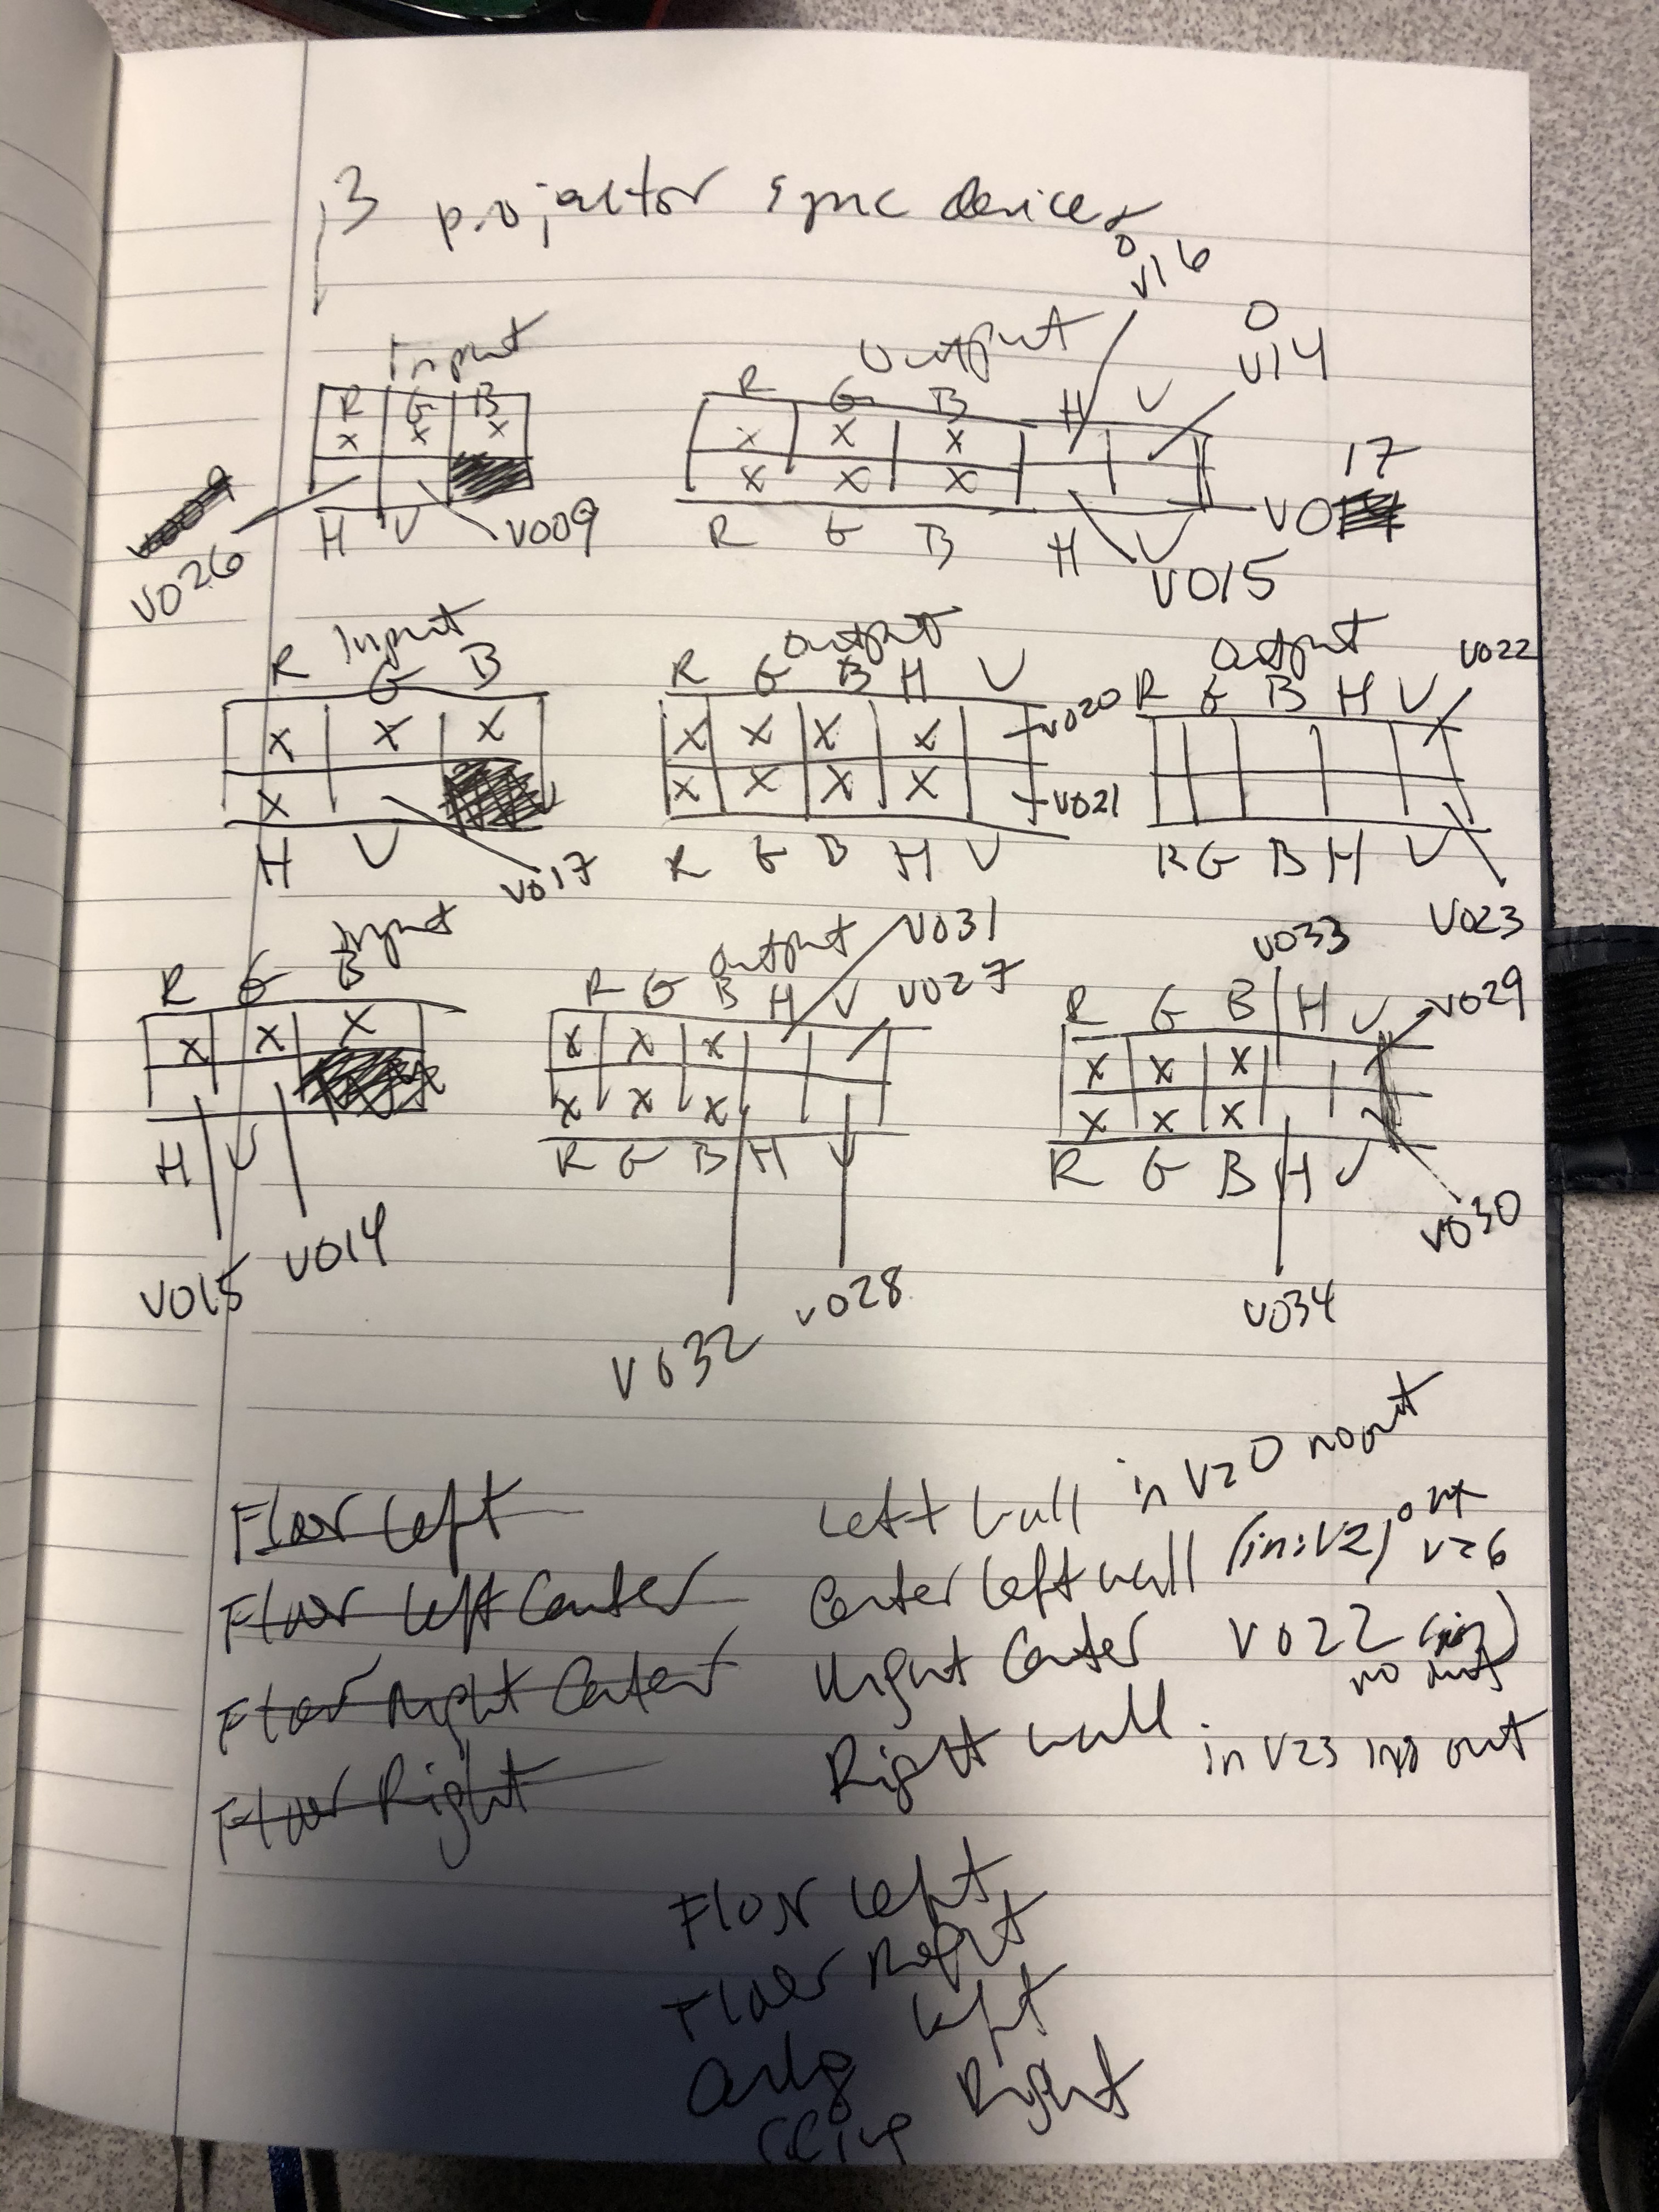 3 projector sync devices
Input
Output
0
V16
0
V14
R G B
R G B H V
X X X
X X X
X X X
17
V0
V026
H V
V009
R G B H V
V015
Input
Output
Output
R G B
R G B H V
R G B H V
V022
X X X
X X X X
V020
X
X X X X
V021
H V
V017
R G B H V
R G B H V
V023
Input
Output
V031
V033
R G B
R G B H V
V027
R G B H V
V029
X X X
X X X
X X X
X X X
X X X
H V
R G B H V
R G B H V
V030
V015
V014
V032
V028
V034
Floor Left
Left wall in V20 no out
Floor Left Center
Center Left wall (in: V2) out V26
Floor Right Center
Right Center V022 (in) no out
Floor Right
Right wall in V23 no out
Floor Left
Floor Right
Left
Right